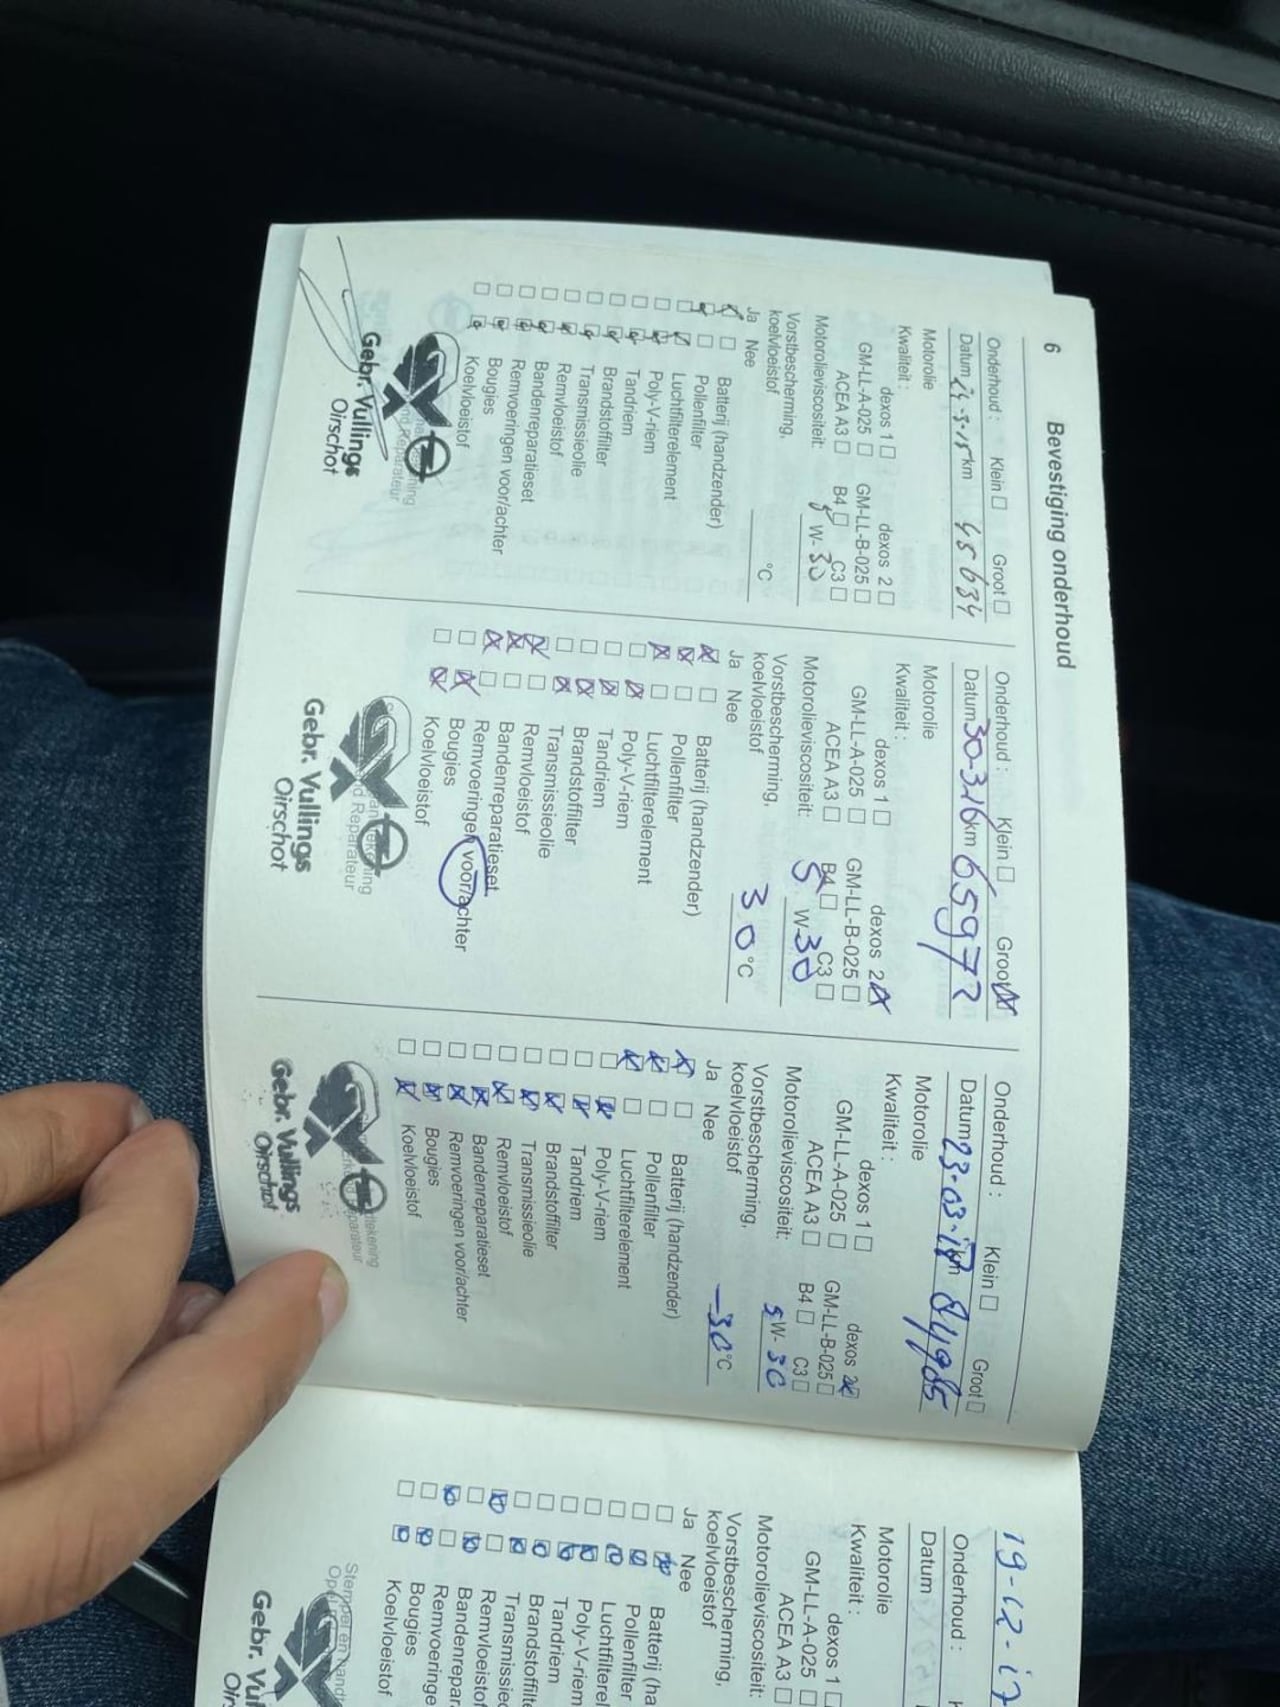 6 Bevestiging onderhoud
Onderhoud : Klein ☐ Groot ☐
Datum 24-3-15 km 45634
Motorolie
Kwaliteit : dexos 1 ☐ dexos 2 ☐
GM-LL-A-025 ☐ GM-LL-B-025 ☐
ACEA A3 ☐ B4 ☐ C3 ☐
Motorolieviscositeit: 5 W-30
Vorstbescherming,
koelvloeistof °C
Ja Nee
☒ ☐ Batterij (handzender)
☒ ☐ Pollenfilter
☐ ☒ Luchtfilterelement
☐ ☒ Poly-V-riem
☐ ☒ Tandriem
☐ ☒ Brandstoffilter
☐ ☒ Transmissieolie
☐ ☒ Remvloeistof
☐ ☒ Bandenreparatieset
☐ ☒ Remvoeringen voor/achter
☐ ☒ Bougies
☐ ☒ Koelvloeistof
Gebr. Vullings
Oirschot
Onderhoud : Klein ☐ Groot ☒
Datum 30-3-16 km 65972
Motorolie
Kwaliteit : dexos 1 ☐ dexos 2 ☒
GM-LL-A-025 ☐ GM-LL-B-025 ☐
ACEA A3 ☐ B4 ☐ C3 ☐
Motorolieviscositeit: 5 W 30
Vorstbescherming,
koelvloeistof 30 °C
Ja Nee
☒ ☐ Batterij (handzender)
☒ ☐ Pollenfilter
☒ ☐ Luchtfilterelement
☐ ☒ Poly-V-riem
☐ ☒ Tandriem
☐ ☒ Brandstoffilter
☐ ☒ Transmissieolie
☒ ☐ Remvloeistof
☒ ☐ Bandenreparatieset
☒ ☐ Remvoeringen voor/achter
☐ ☒ Bougies
☐ ☒ Koelvloeistof
Reparateur
Gebr. Vullings
Oirschot
Onderhoud : Klein ☐ Groot ☐
Datum 23-03-17 km 84985
Motorolie
Kwaliteit : dexos 1 ☐ dexos 2 ☒
GM-LL-A-025 ☐ GM-LL-B-025 ☐
ACEA A3 ☐ B4 ☐ C3 ☐
Motorolieviscositeit: 5 W-30
Vorstbescherming,
koelvloeistof -30 °C
Ja Nee
☒ ☐ Batterij (handzender)
☒ ☐ Pollenfilter
☒ ☐ Luchtfilterelement
☐ ☒ Poly-V-riem
☐ ☒ Tandriem
☐ ☒ Brandstoffilter
☐ ☒ Transmissieolie
☐ ☒ Remvloeistof
☐ ☒ Bandenreparatieset
☐ ☒ Remvoeringen voor/achter
☐ ☒ Bougies
☐ ☒ Koelvloeistof
Gebr. Vullings
Oirschot
19-12-17
Onderhoud :
Datum
Motorolie
Kwaliteit : dexos 1 ☐
GM-LL-A-025 ☐
ACEA A3 ☐
Motorolieviscositeit:
Vorstbescherming,
koelvloeistof
Ja Nee
☐ ☒ Batterij (ha
☐ ☒ Pollenfilter
☐ ☒ Luchtfilterel
☐ ☒ Poly-V-riem
☐ ☒ Tandriem
☐ ☒ Brandstoffilte
☐ ☒ Transmissie
☒ ☐ Remvloeistof
☐ ☒ Bandenrepar
☒ ☐ Remvoeringe
☐ ☒ Bougies
☐ ☒ Koelvloeistof
Stempel en hand
Gebr. Vul